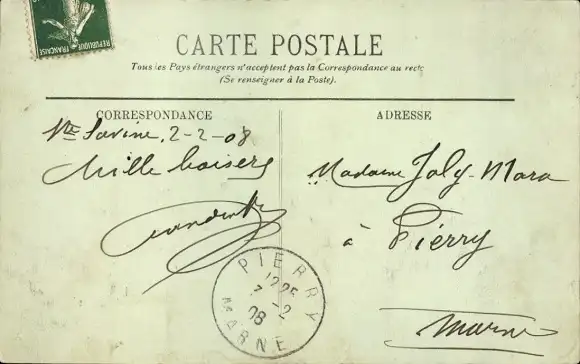 REPUBLIQUE FRANÇAISE
CARTE POSTALE
Tous les Pays étrangers n'acceptent pas la Correspondance au recto
(Se renseigner à la Poste).
CORRESPONDANCE
Ste Savine, 2-2-08
Mille baisers
ADRESSE
Madame Joly-Mara
à Pierry
Marne
PIERRY
12 25
7 -2
08
MARNE